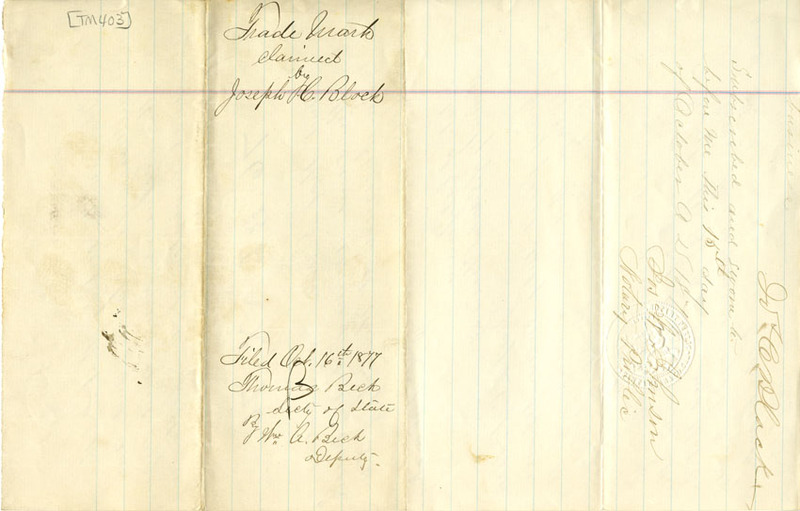 [TM403]
Trade Mark
claimed
by
Joseph H. Block
Filed Oct. 16th 1877
Thomas Beck
Secty of State
By Wm. A. Beck
Deputy
Subscribed and sworn to
before me this 15th day
of October A D 1877
Jos
Notary Public